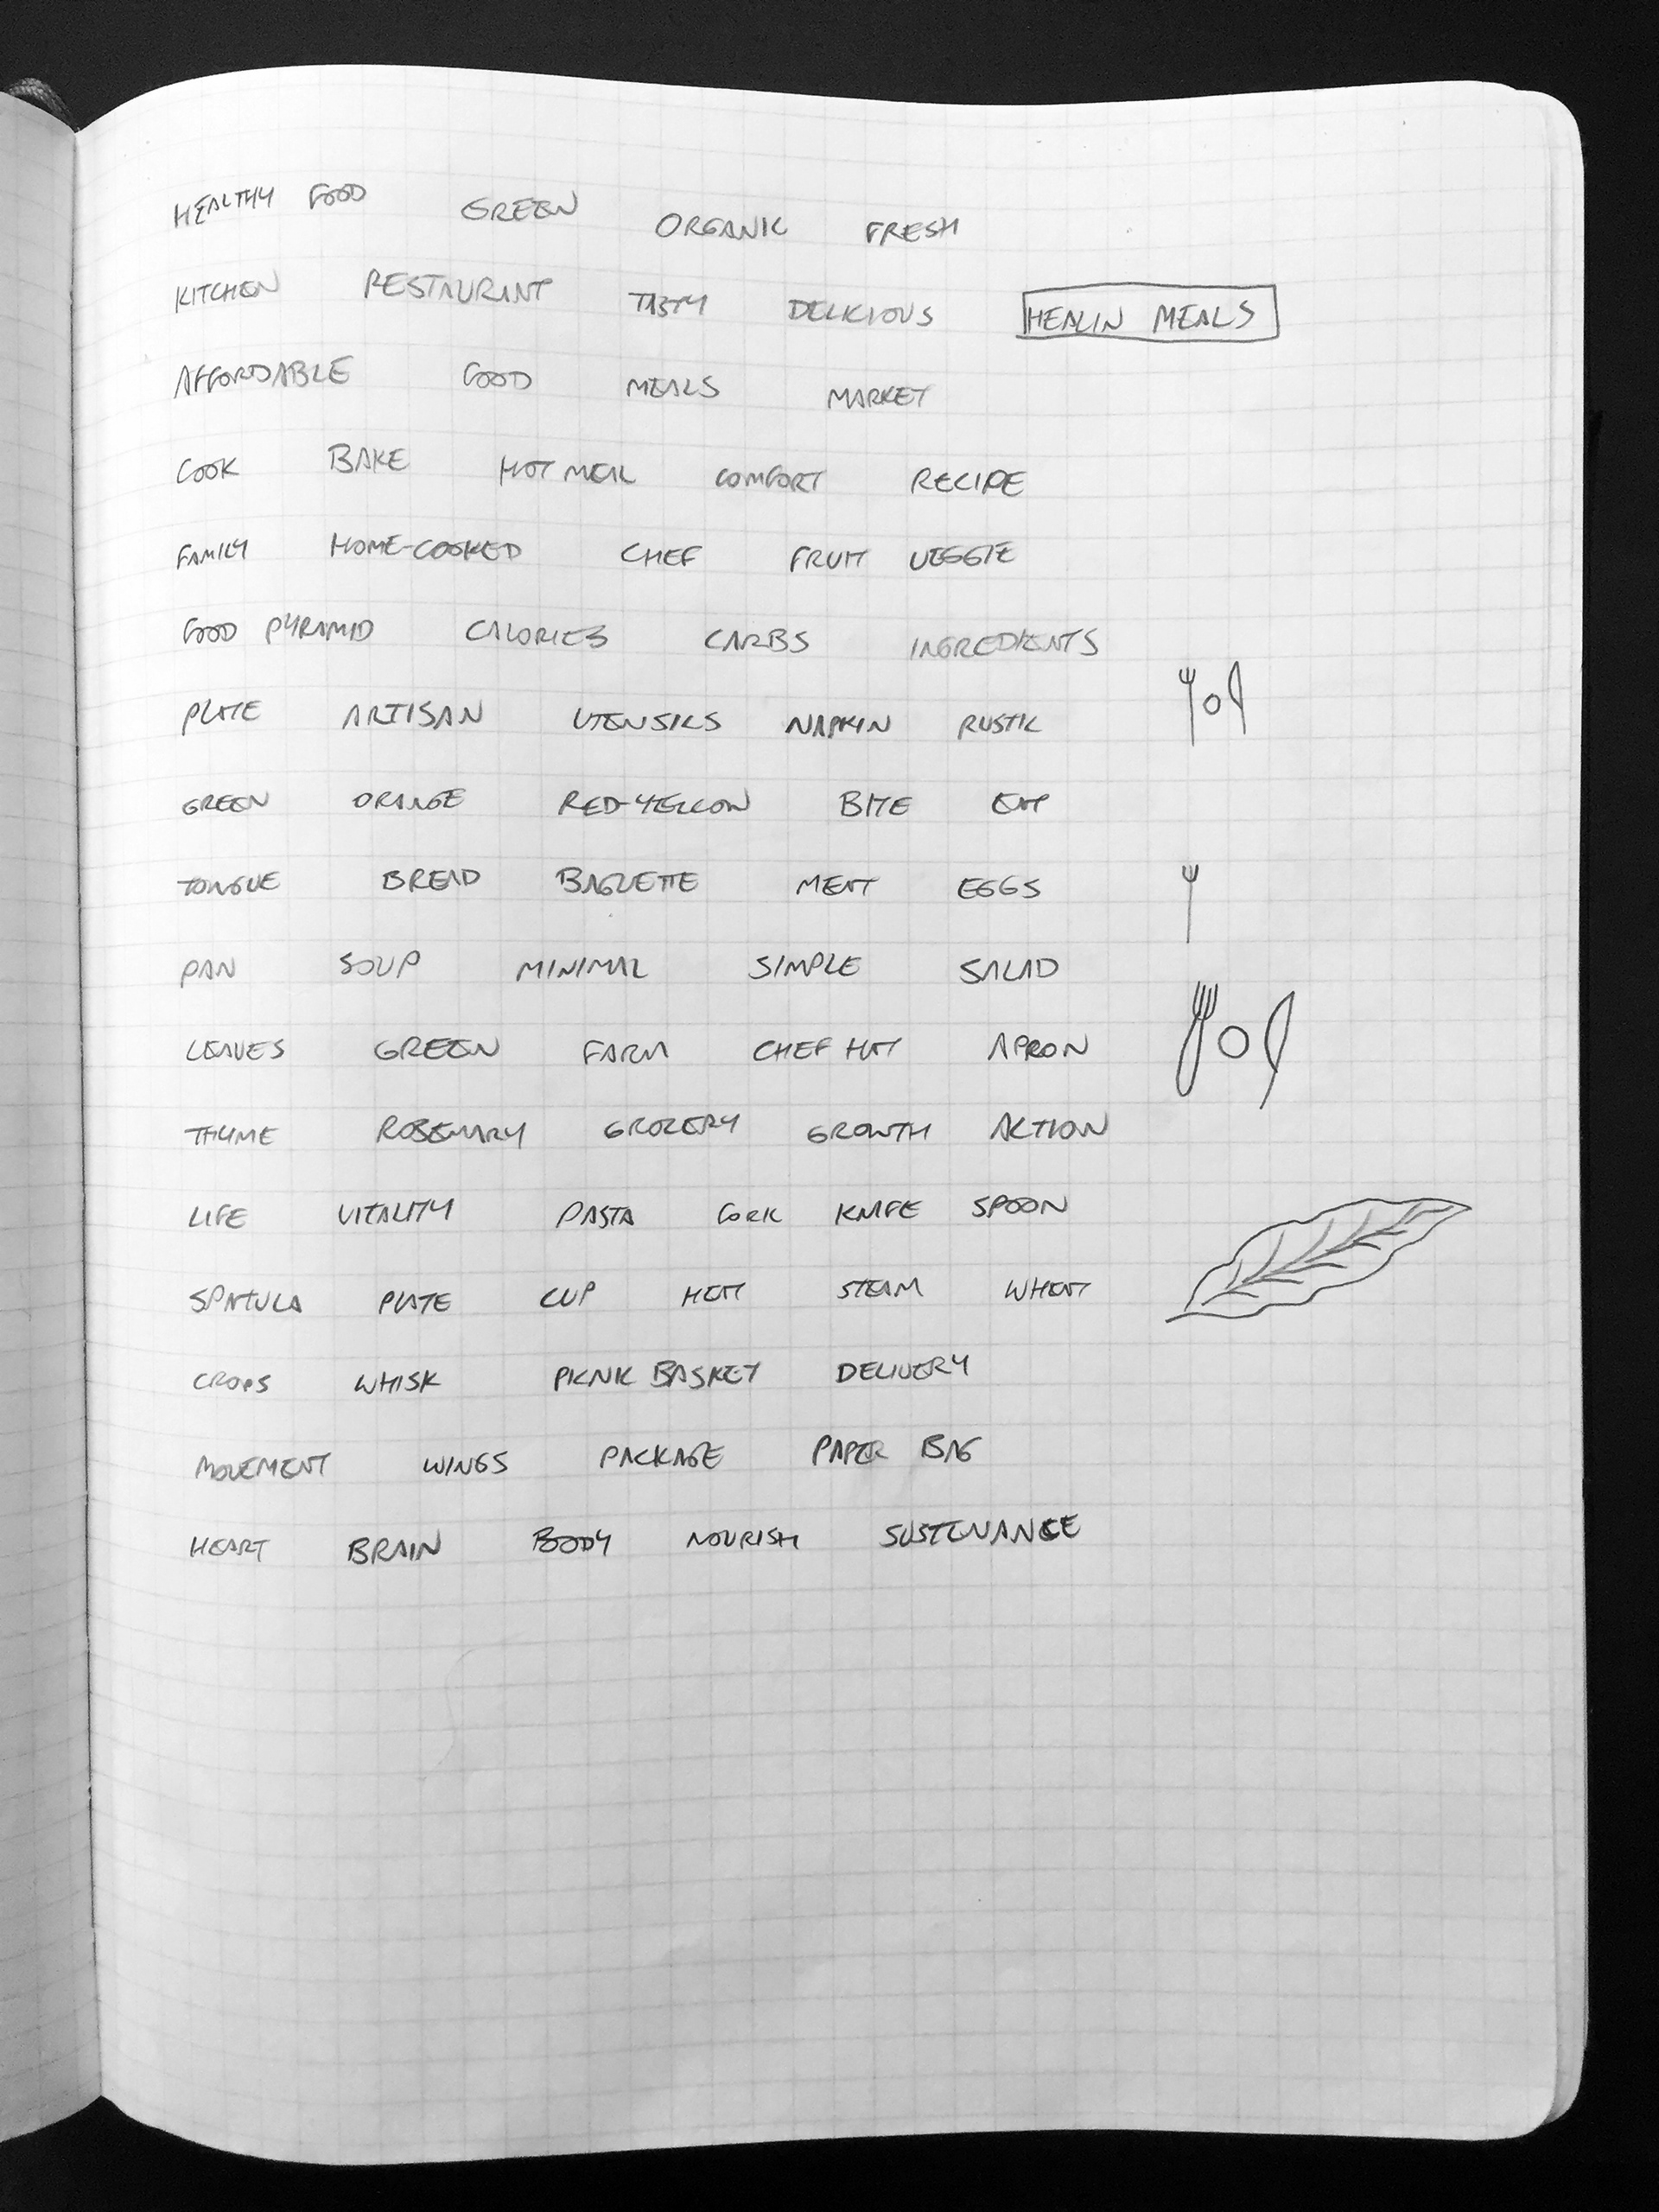 HEALTHY FOOD GREEN ORGANIC FRESH
KITCHEN RESTAURANT TASTY DELICIOUS HEALIN MEALS
AFFORDABLE FOOD MEALS MARKET
COOK BAKE HOT MEAL COMFORT RECIPE
FAMILY HOME-COOKED CHEF FRUIT VEGGIE
FOOD PYRAMID CALORIES CARBS INGREDIENTS
PLATE ARTISAN UTENSILS NAPKIN RUSTIC
GREEN ORANGE RED-YELLOW BITE EAT
TONGUE BREAD BAGUETTE MEAT EGGS
PAN SOUP MINIMAL SIMPLE SALAD
LEAVES GREEN FARM CHEF HAT APRON
THYME ROSEMARY GROCERY GROWTH ACTION
LIFE VITALITY PASTA FORK KNIFE SPOON
SPATULA PLATE CUP HEAT STEAM WHEAT
CROPS WHISK PICNIC BASKET DELIVERY
MOVEMENT WINGS PACKAGE PAPER BAG
HEART BRAIN BODY NOURISH SUSTENANCE